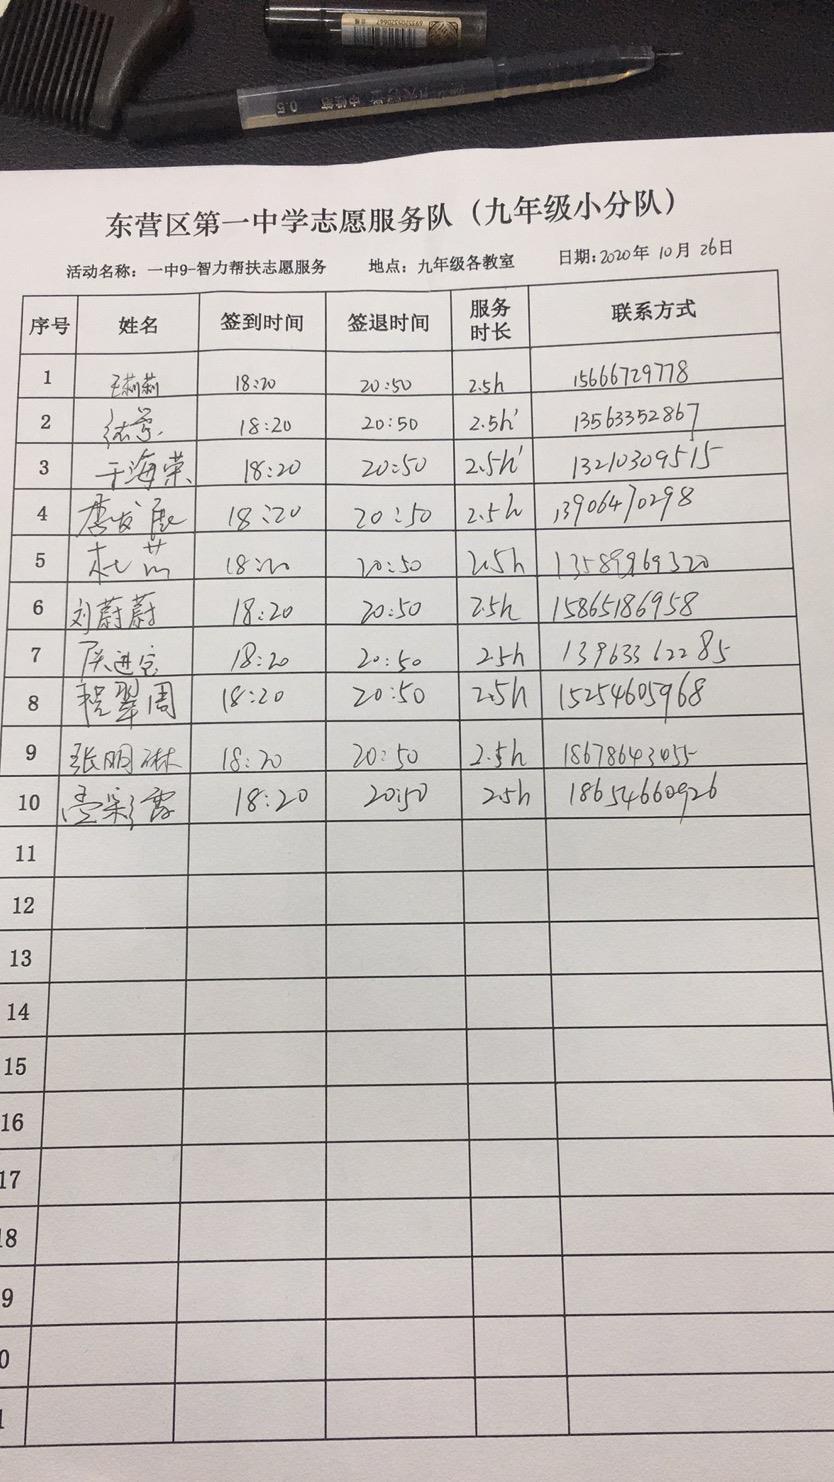 0.5
东营区第一中学志愿服务队（九年级小分队）
活动名称：一中9-智力帮扶志愿服务 地点：九年级各教室 日期：2020年 10月 26日
序号 姓名 签到时间 签退时间 服务时长 联系方式
1 王莉莉 18:20 20:50 2.5h 15666729778
2 18:20 20:50 2.5h 13563352867
3 于海荣 18:20 20:50 2.5h 13210309515
4 唐发展 18:20 20:50 2.5h 13906470298
5 杜芸 18:20 20:50 2.5h 13589969320
6 刘蔚蔚 18:20 20:50 2.5h 15865186958
7 18:20 20:50 2.5h 13963362285
8 程翠周 18:20 20:50 2.5h 15254605968
9 张明琳 18:20 20:50 2.5h 18678643055
10 18:20 20:50 2.5h 18654660926
11
12
13
14
15
16
17
18
9
0
1